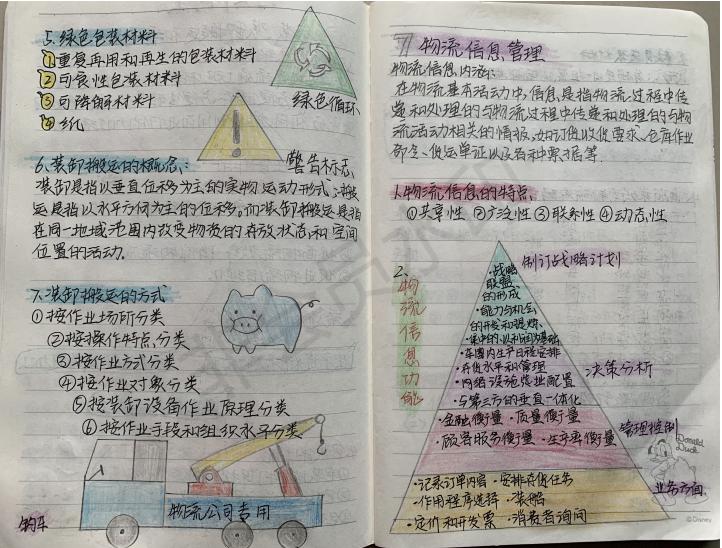 5.绿色包装材料
①重复再用和再生的包装材料
②可食性包装材料
③可降解材料
④纸
绿色循环
警告标志
6.装卸搬运的概念:
装卸是指以垂直位移为主的实物运动形式;搬
运是指以水平方向为主的位移。而装卸搬运是指
在同一地域范围内改变物资的存放状态和空间
位置的活动.
7.装卸搬运的方式
①按作业场所分类
②按操作特点分类
③按作业方式分类
④按作业对象分类
⑤按装卸设备作业原理分类
⑥按作业手段和组织水平分类
物流公司专用
钩车
物流信息管理
物流信息内涵:
在物流基本活动中,信息是指物流过程中传
递和处理的与物流过程中传递和处理的与物
流活动相关的情报,如订货收货要求、仓库作业
部令、货运单证以及各种票据等.
1.物流信息的特点
①共享性 ②广泛性 ③联系性 ④动态性
2、
物流信息功能
制订战略计划
·战略
联盟
的形成
·能力与机会
的开发和提炼
·集中的以利润为基础
·车辆内生产日程安排
·存货水平和管理
·网络设施选业配置
·与第三方的垂直一体化
决策分析
·金融衡量 ·质量衡量
·顾客服务衡量 ·生产率衡量
管理控制
·记录订单内容 ·安排存货任务
·作用程序选择 ·装船
·定价和开发票 ·消费者询问
业务方面
Donald
Duck
©Disney